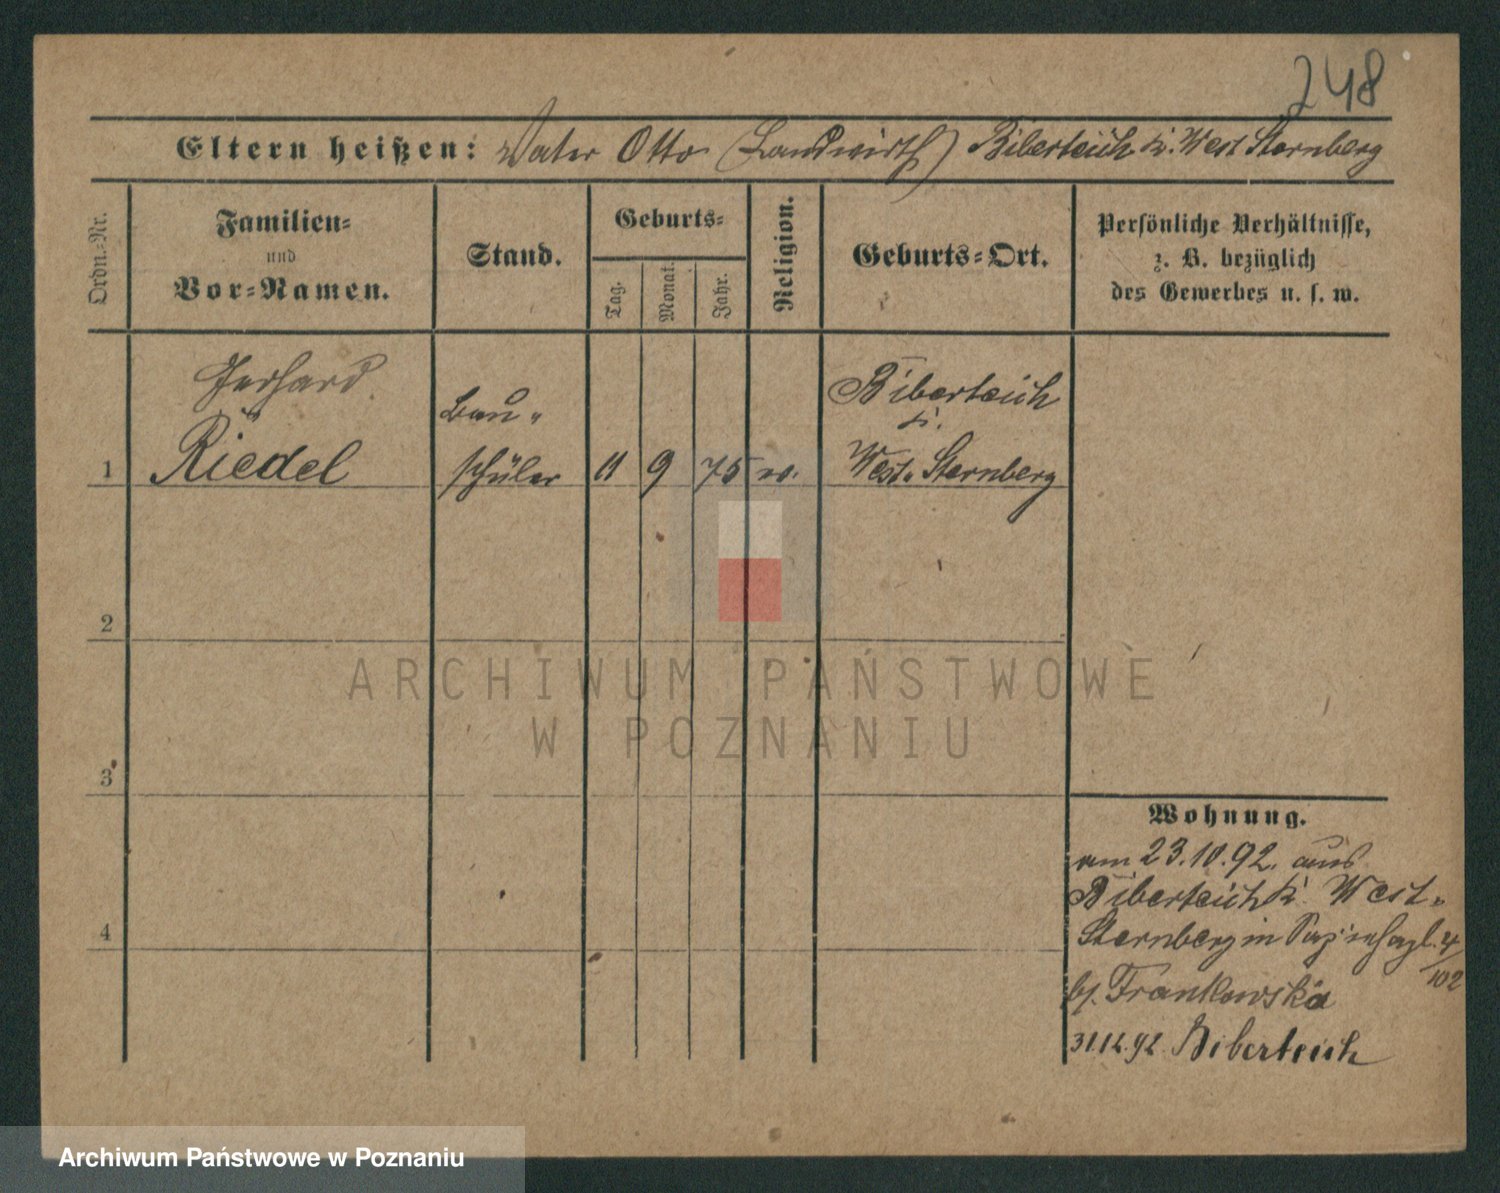 248
Eltern heißen: Vater Otto (Landwirth) Biberteich K. West Sternberg
Ordn.-Nr.
Familien-
und
Vor-Namen.
Stand.
Geburts-
Tag.
Monat.
Jahr.
Religion.
Geburts-Ort.
Persönliche Verhältnisse,
z. B. bezüglich
des Gewerbes u. s. w.
Gerhard
Riedel
Bau-
schüler
1
11
9
75
Biberteich
K.
West-Sternberg
2
3
4
Wohnung.
am 23.10.92. aus
Biberteich K. West-
Sternberg in 4/102
bj. Frankowska
31.12.92. Biberteich
ARCHIWUM PAŃSTWOWE
W POZNANIU
Archiwum Państwowe w Poznaniu